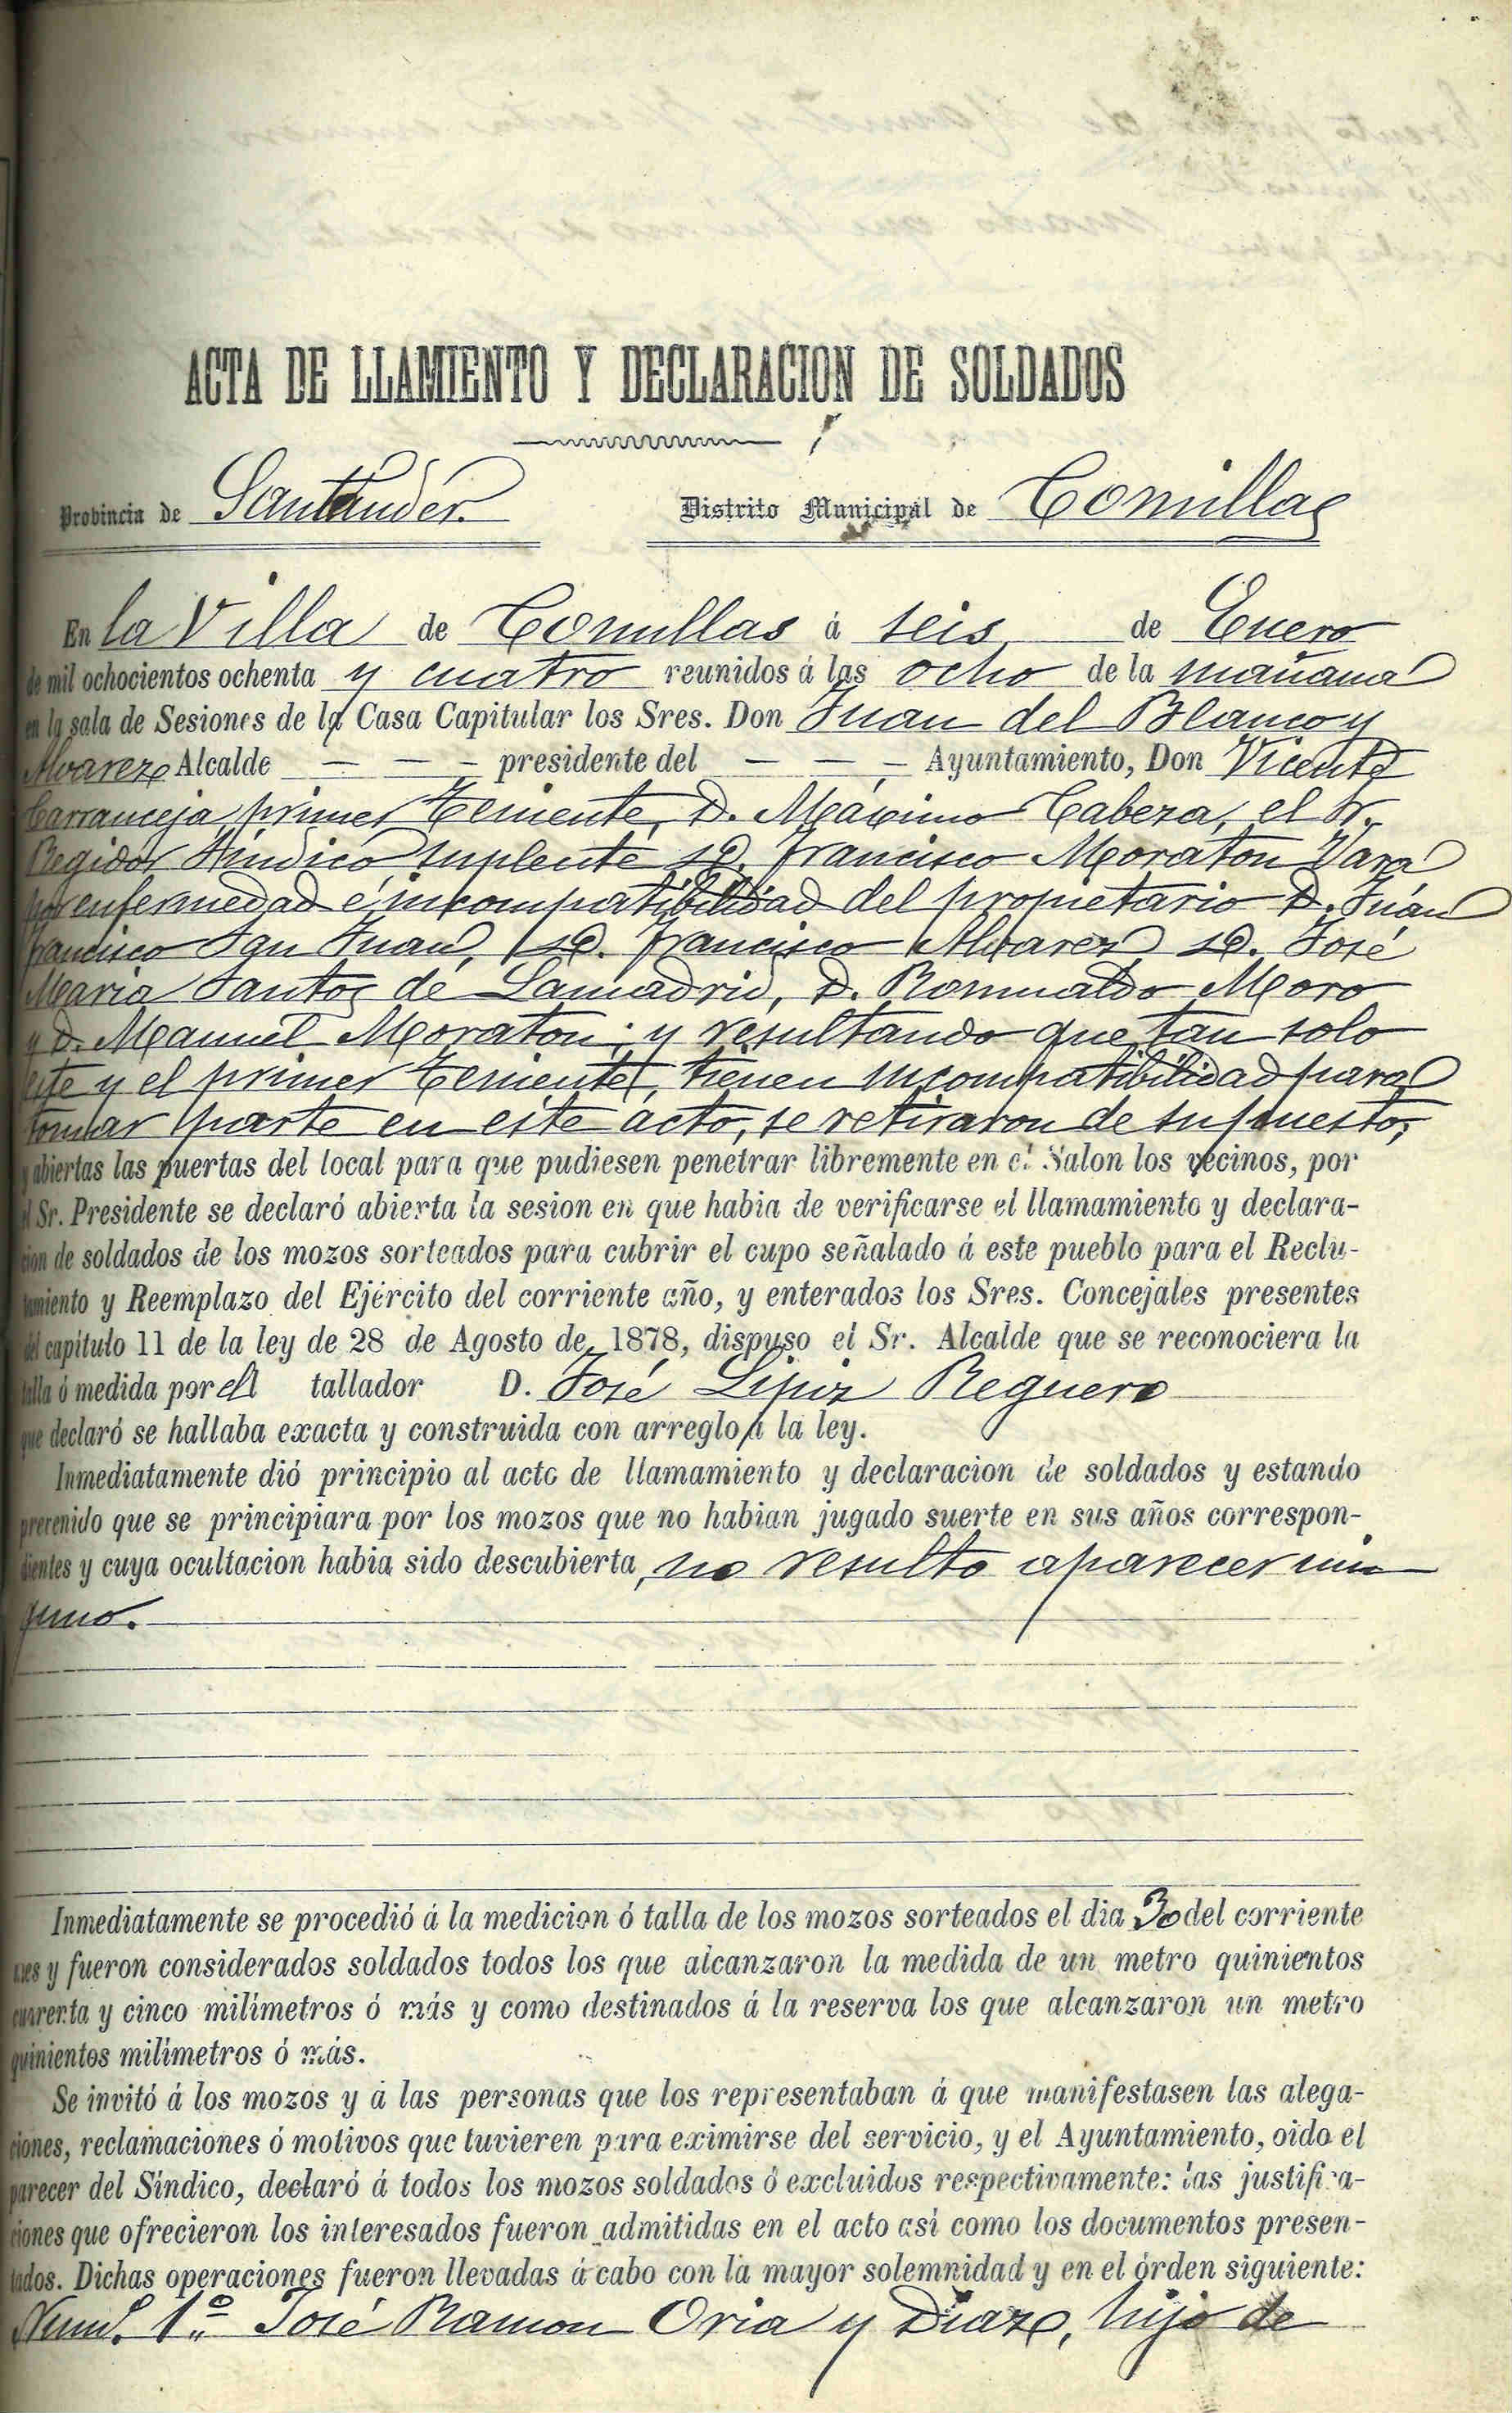 ACTA DE LLAMIENTO Y DECLARACION DE SOLDADOS
Provincia de Santander. Distrito Municipal de Comillas
En la Villa de Comillas á seis de Enero
de mil ochocientos ochenta y cuatro reunidos á las ocho de la mañana
en la sala de Sesiones de la Casa Capitular los Sres. Don Juan del Blanco y
Alvarez Alcalde — — — presidente del — — — Ayuntamiento, Don Vicente
Carranceja primer Teniente, D. Máximo Cabeza, el Sr.
Regidor Síndico suplente D. Francisco Moraton Vara
por enfermedad é incompatibilidad del propietario D. Juán
Francisco San Juan, D. Francisco Alvarez, D. José
Maria Santos de Lamadrid, D. Romualdo Moro
y D. Manuel Moraton; y resultando que tan solo
este y el primer Teniente, tienen incompatibilidad para
tomar parte en este acto, se retiraron de su puesto;
y abiertas las puertas del local para que pudiesen penetrar libremente en el Salon los vecinos, por
el Sr. Presidente se declaró abierta la sesion en que habia de verificarse el llamamiento y declara-
cion de soldados de los mozos sorteados para cubrir el cupo señalado á este pueblo para el Reclu-
tamiento y Reemplazo del Ejército del corriente año, y enterados los Sres. Concejales presentes
del capitulo 11 de la ley de 28 de Agosto de 1878, dispuso el Sr. Alcalde que se reconociera la
talla ó medida por el tallador D. José Reguero
que declaró se hallaba exacta y construida con arreglo á la ley.
Inmediatamente dió principio al acto de llamamiento y declaracion de soldados y estando
prevenido que se principiara por los mozos que no habian jugado suerte en sus años correspon-
dientes y cuya ocultacion habia sido descubierta, no resulto aparecer nin
guno.
Inmediatamente se procedió á la medicion ó talla de los mozos sorteados el dia 30 del corriente
mes y fueron considerados soldados todos los que alcanzaron la medida de un metro quinientos
cuarenta y cinco milímetros ó más y como destinados á la reserva los que alcanzaron un metro
quinientos milímetros ó más.
Se invitó á los mozos y á las personas que los representaban á que manifestasen las alega-
ciones, reclamaciones ó motivos que tuvieren para eximirse del servicio, y el Ayuntamiento, oido el
parecer del Síndico, declaró á todos los mozos soldados ó excluidos respectivamente: las justifica-
ciones que ofrecieron los interesados fueron admitidas en el acto así como los documentos presen-
tados. Dichas operaciones fueron llevadas á cabo con la mayor solemnidad y en el órden siguiente:
Num.º 1.º José Ramon Oria y Diaz, hijo de